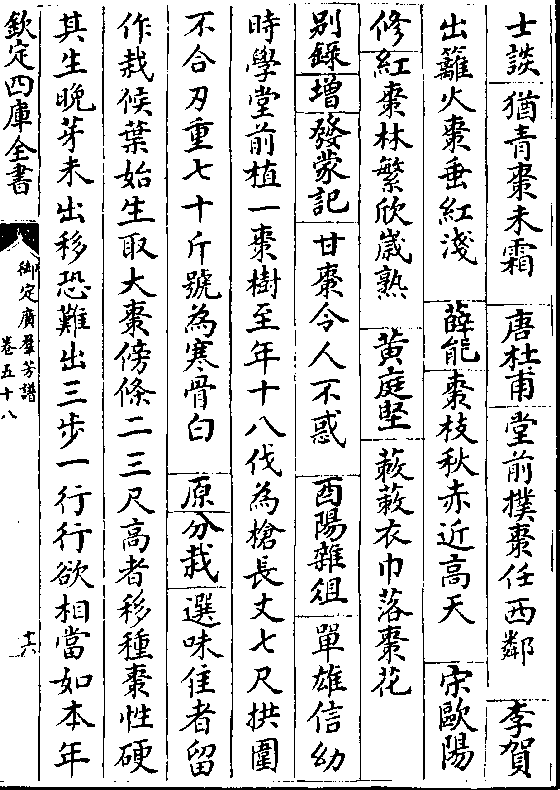 士談猶青棗未霜 唐杜甫堂前撲棗任西鄰 李賀
出籬火棗垂紅淺 薛能棗枝秋赤近高天 宋歐陽
修紅棗林繁欣歲熟 黄庭堅蔌蔌衣巾落棗花
别錄增發蒙記甘棗令人不惑 酉陽雜俎單雄信幼
時學堂前植一棗樹至年十八伐為槍長丈七尺拱圍
不合刃重七十斤號為寒骨白 原分栽選味佳者留
作栽候葉始生取大棗傍條二三尺高者移種棗性硬
其生晚芽未出移恐難出三步一行行欲相當如本年
欽定四庫全書
御定廣羣芳譜
卷五十八
十六